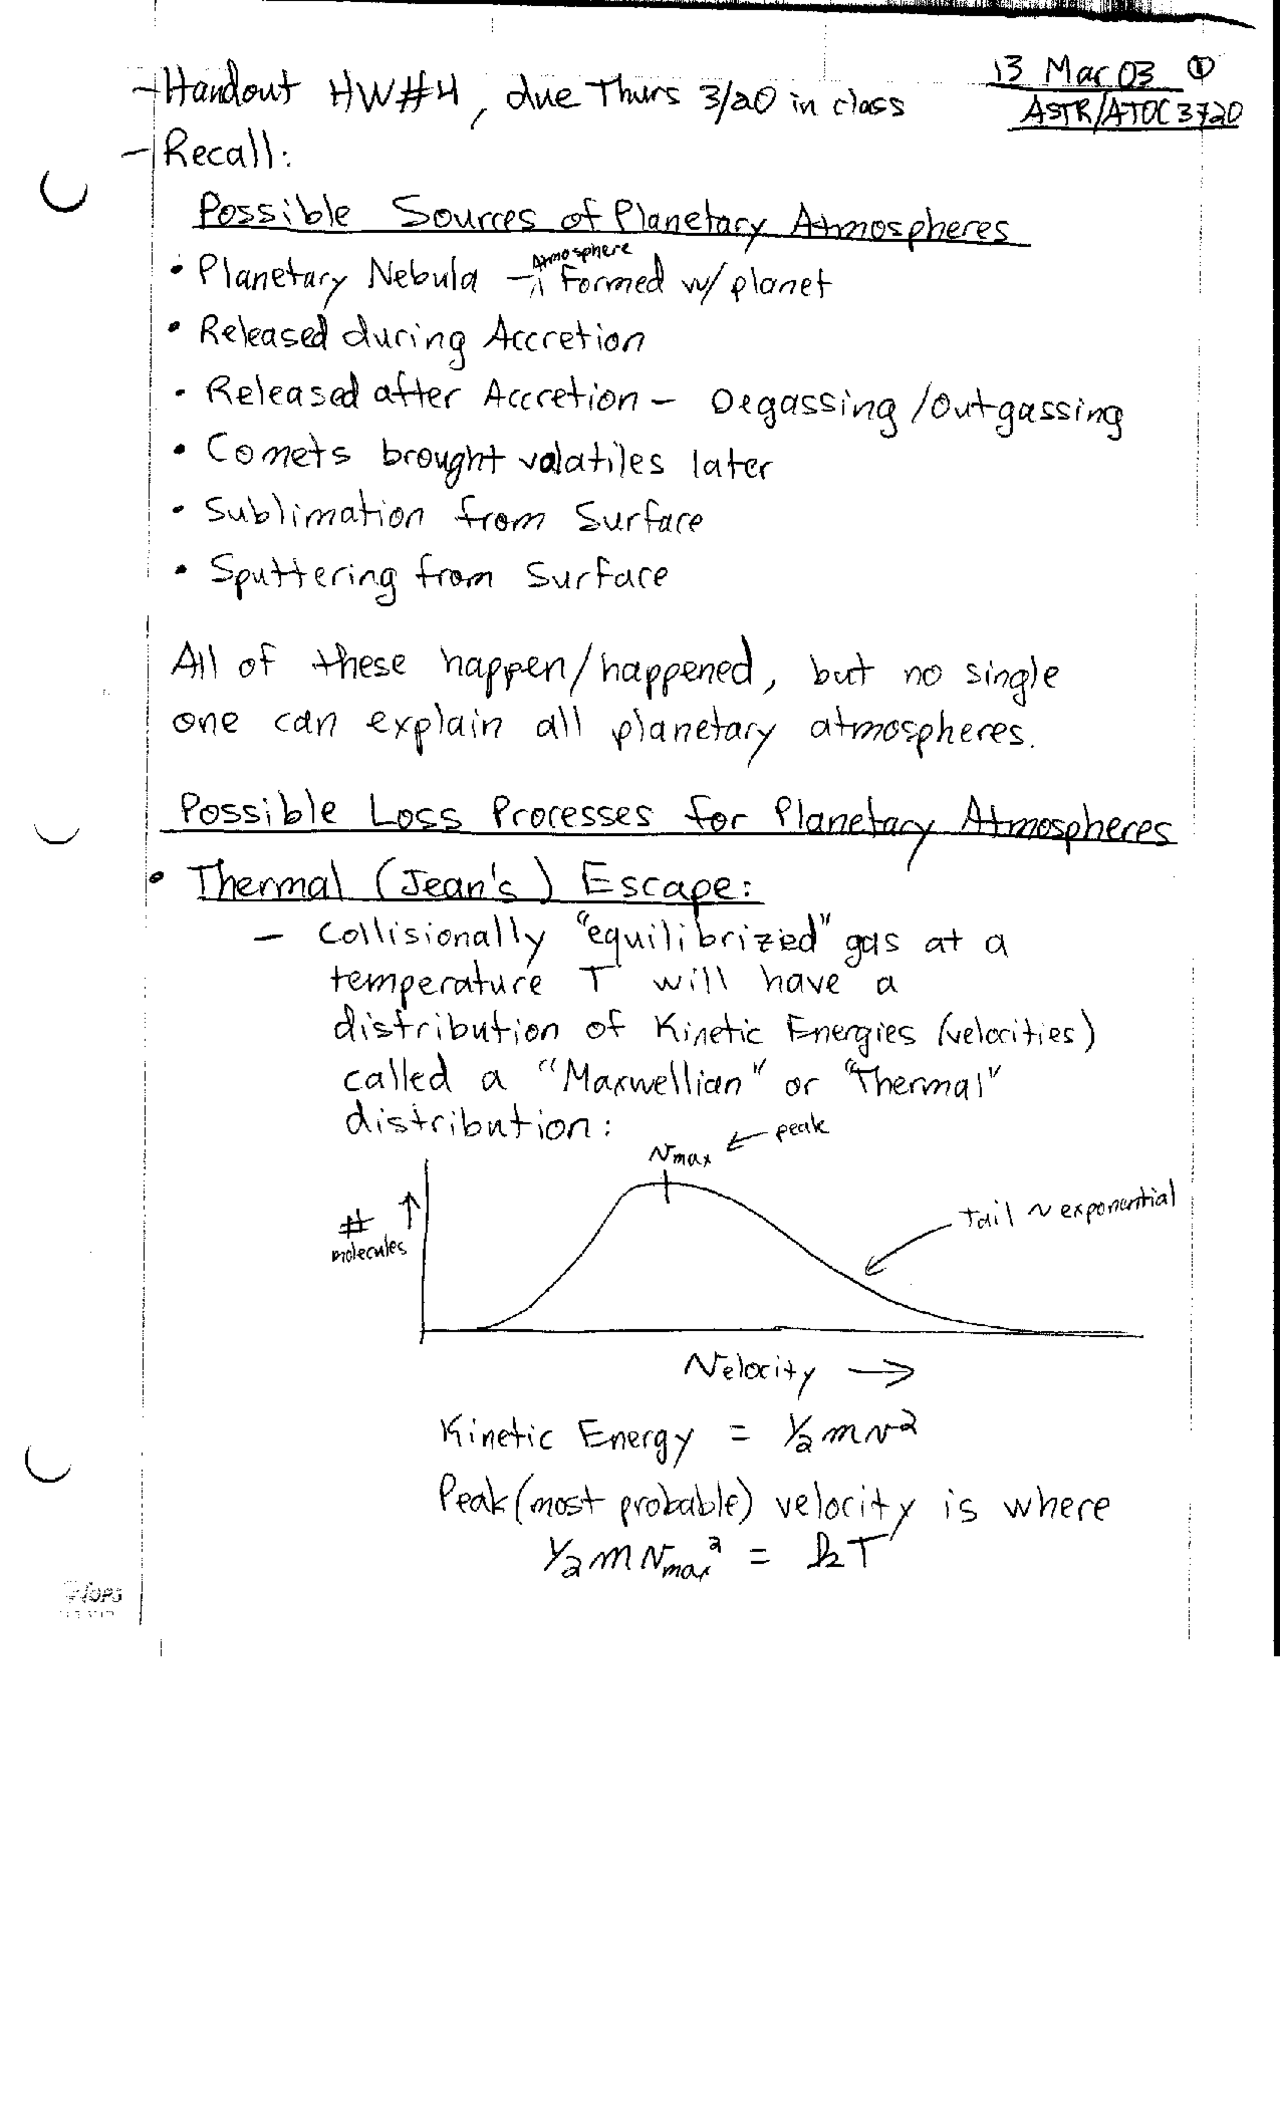 13 Mar 03 ①
ASTR/ATOC 3720
- Handout HW#4, due Thurs 3/20 in class
- Recall:
Possible Sources of Planetary Atmospheres
• Planetary Nebula - Atmosphere Formed w/ planet
• Released during Accretion
• Released after Accretion - Degassing/Outgassing
• Comets brought volatiles later
• Sublimation from Surface
• Sputtering from Surface
All of these happen/happened, but no single
one can explain all planetary atmospheres.
Possible Loss Processes for Planetary Atmospheres
• Thermal (Jean's) Escape:
- Collisionally "equilibrized" gas at a
temperature T will have a
distribution of Kinetic Energies (velocities)
called a "Maxwellian" or "Thermal"
distribution:
vmax ← peak
# molecules ↑
Tail ~ exponential
Velocity →
Kinetic Energy = ½mv²
Peak (most probable) velocity is where
½mvmax² = kT